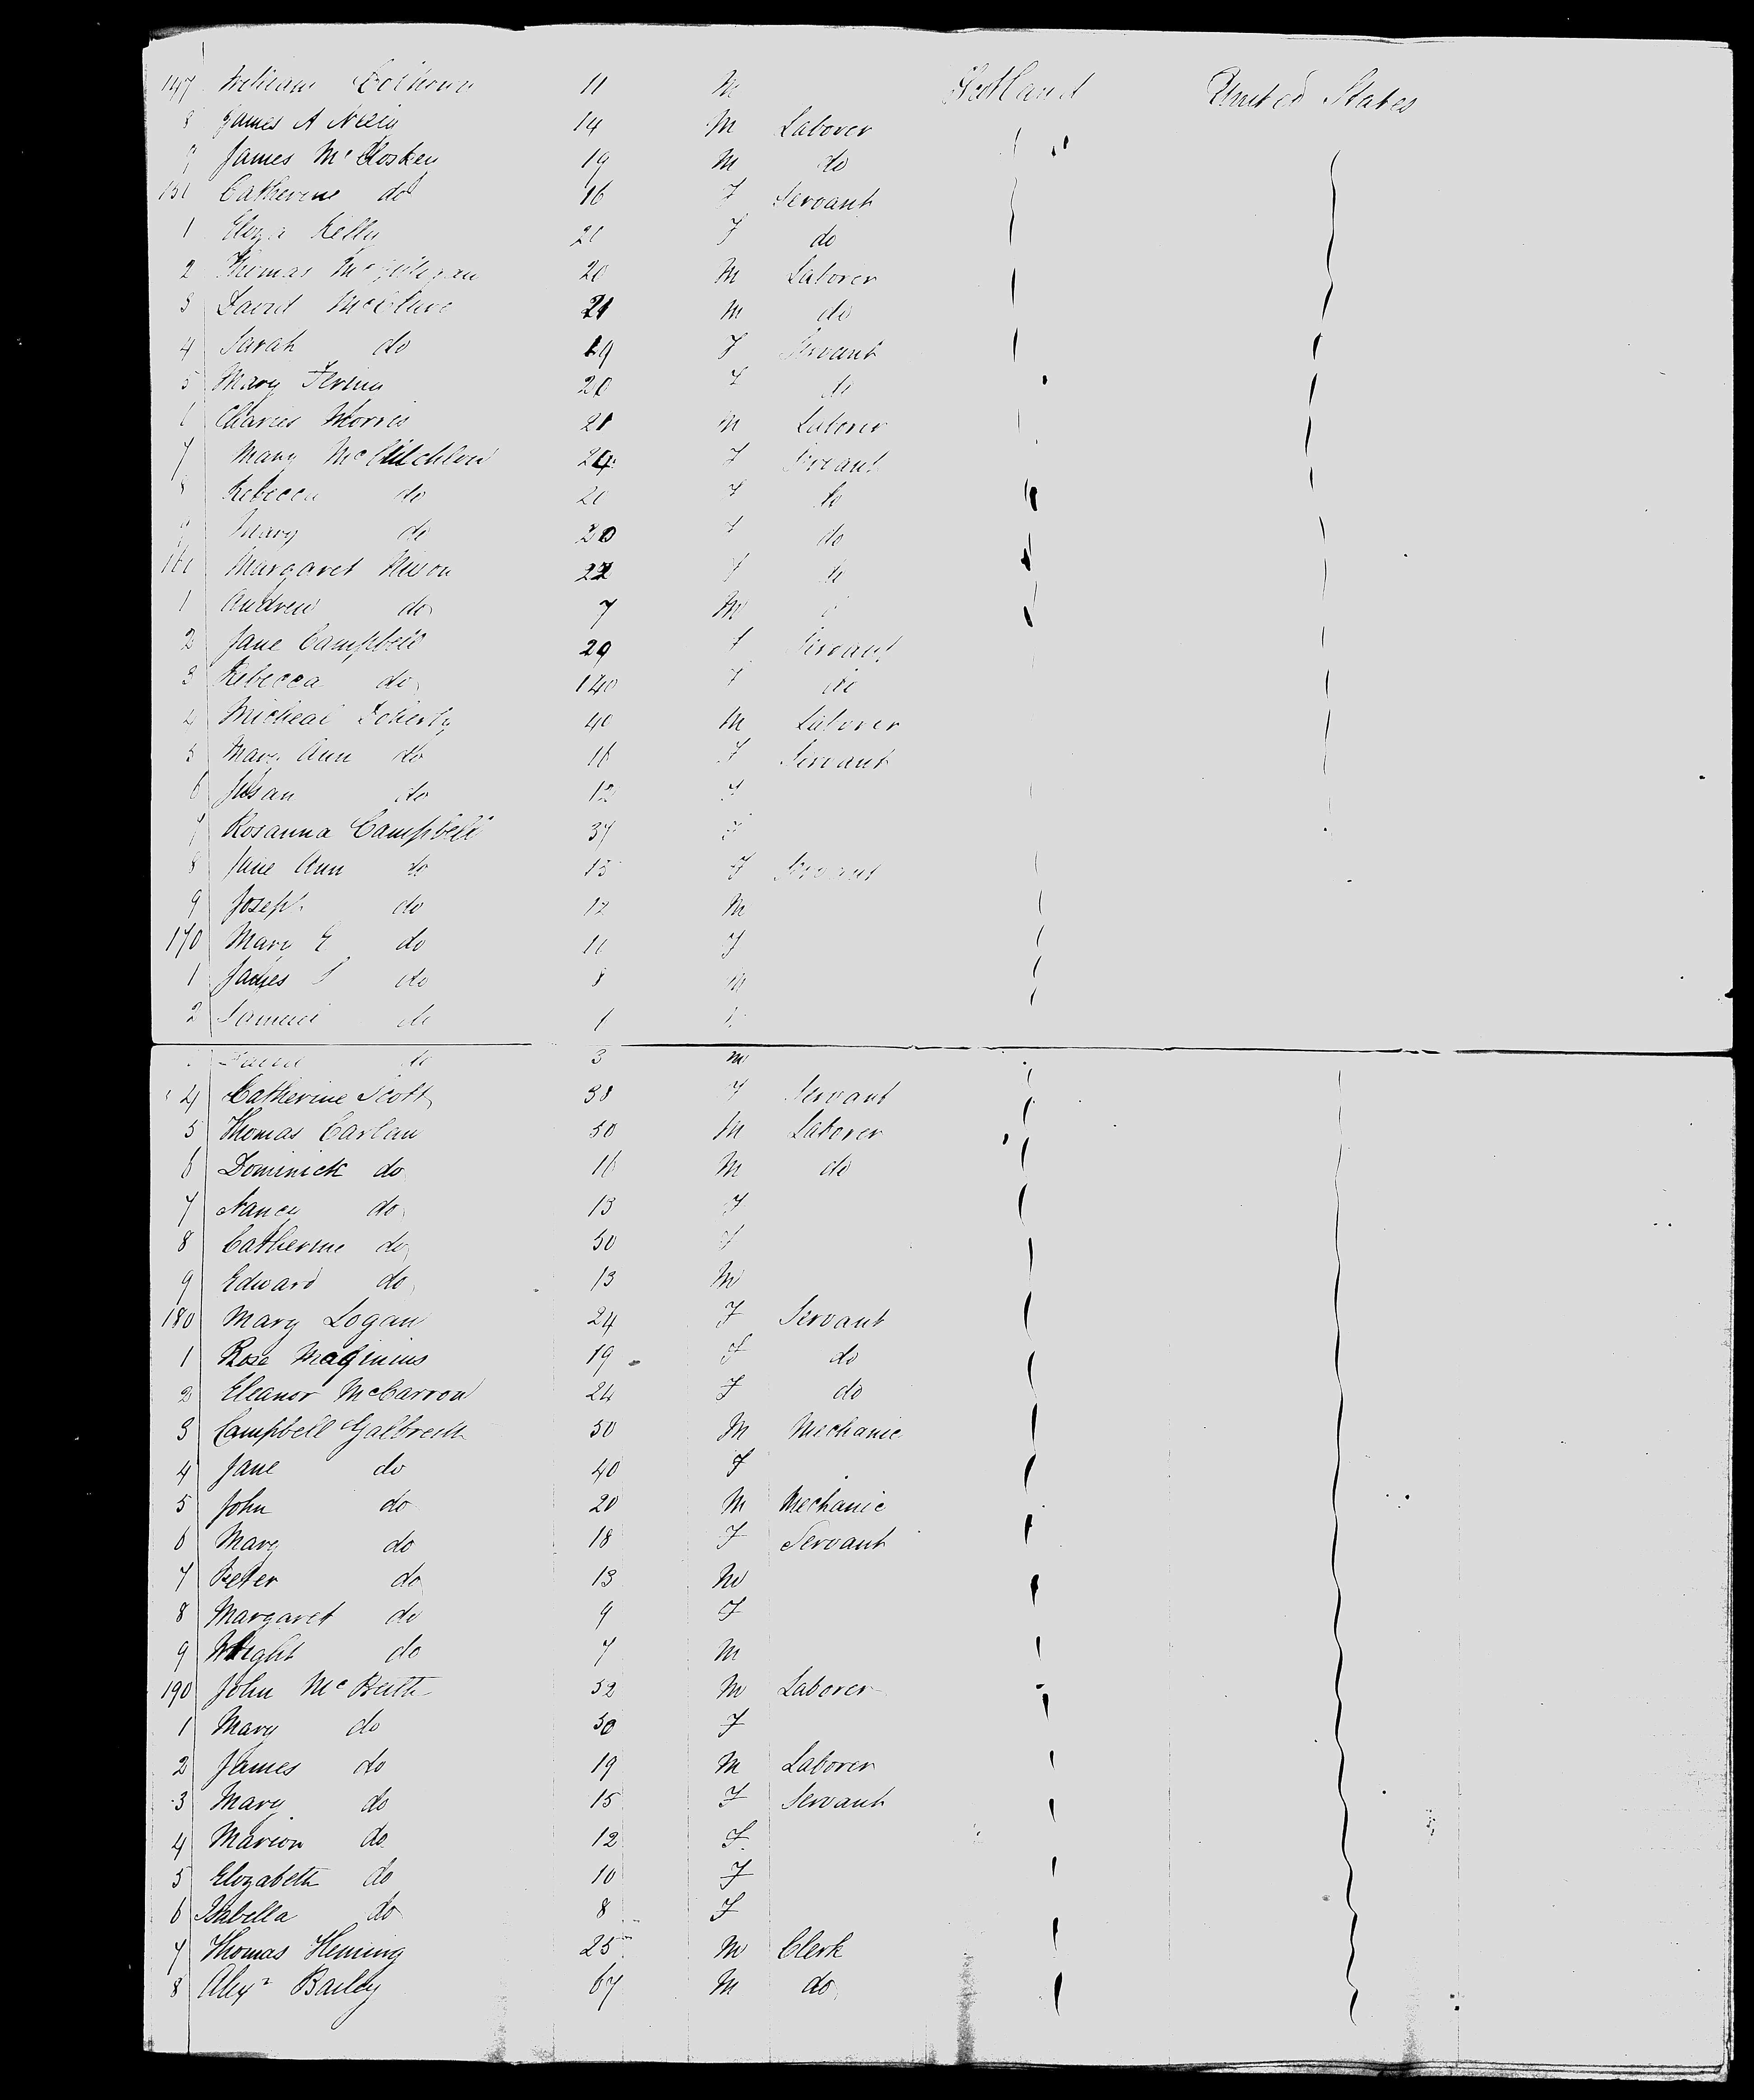 147 William 11 M Scotland United States
8 James A 14 M Laborer
9 James McCloskey 19 M do
150 Catherine do 16 F Servant
1 Eliza Kelly 20 F do
2 Thomas 20 M Laborer
3 David McClure 21 M do
4 Sarah do 19 F Servant
5 Mary 20 F do
6 Charles Morris 21 M Laborer
7 Mary 24 F Servant
8 Rebecca do 20 F do
9 Mary do 20 F do
160 Margaret 22 F do
1 Andrew do 7 M
2 Jane Campbell 29 F Servant
3 Rebecca do F do
4 Micheal Doherty 40 M Laborer
5 Mary Ann do 16 F Servant
6 Susan do 12 F
7 Rosanna Campbell 37 F
8 Jane Ann do 15 F Servant
9 Joseph do 12 M
170 Mary E do 11 F
1 James S do 8 M
2 Samuel do 1 M
do 3 M
4 Catherine Scott 38 F Servant
5 Thomas Carlan 50 M Laborer
6 Dominick do 16 M do
7 Nancy do 13 F
8 Catherine do 50 F
9 Edward do 13 M
180 Mary Logan 24 F Servant
1 Rose Maginius 19 F do
2 Eleanor McCarron 24 F do
3 Campbell Galbreith 50 M Mechanic
4 Jane do 40 F
5 John do 20 M Mechanic
6 Mary do 18 F Servant
7 Peter do 13 M
8 Margaret do 9 F
9 Wright do 7 M
190 John McBeith 52 M Laborer
1 Mary do 50 F
2 James do 19 M Laborer
3 Mary do 15 F Servant
4 Marion do 12 F
5 Elizabeth do 10 F
6 Isabella do 8 F
7 Thomas Heming 25 M Clerk
8 Alexr Bailey 67 M do